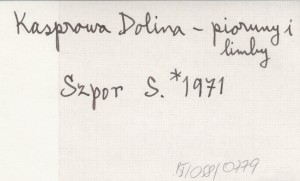 Kasprowa Dolina - pioruny i
limby
Szpor S. *1971
15/088/0279